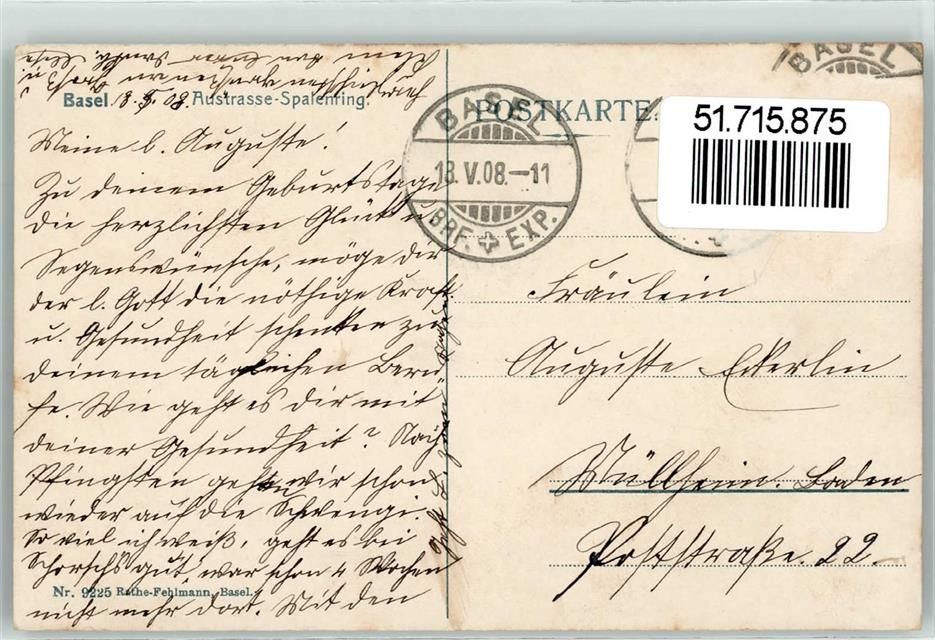 Basel 18.5.08 Austrasse-Spalenring.
Meine l. Auguste!
Zu deinem Geburtstage
die herzlichsten Glück u.
Segenswünsche, möge dir
der l. Gott die nöthige Kraft
u. Gesundheit schenken zu
deinem täglichen Beru-
fe. Wie geht es dir mit
deiner Gesundheit? Nach
Pfingsten gehen wir schon
wieder auf die Schwengi.
So viel ich weiß, geht es bei
Schorschs gut, war schon 4 Wochen
nicht mehr dort. Mit den
Nr. 9225 Rathe-Fehlmann, Basel.
POSTKARTE.
BASEL
18.V.08.-11
BRF. EXP.
BASEL
51.715.875
Fräulein
Auguste Eckerlin
Müllheim. Baden
Poststraße. 22.